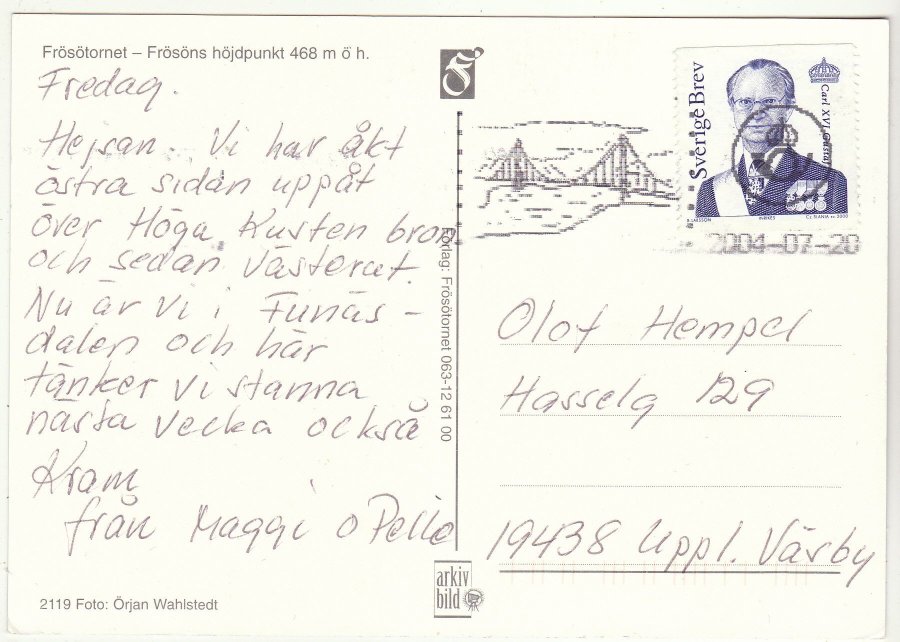 Frösötornet – Frösöns höjdpunkt 468 m ö h.
Fredag.
Hejsan. Vi har åkt
östra sidan uppåt
över Höga Kusten bron
och sedan västerut.
Nu är vi i Funäs-
dalen och här
tänker vi stanna
nästa vecka också
Kram
från Maggi o Pelle
2119 Foto: Örjan Wahlstedt
Förlag: Frösötornet 063-12 61 00
arkiv
bild
Sverige Brev
Carl XVI Gustaf
B. LARSSON
INRIKES
Cz. SLANIA sc 2000
2004-07-20
Olof Hempel
Hasselg 129
19438 Uppl. Väsby